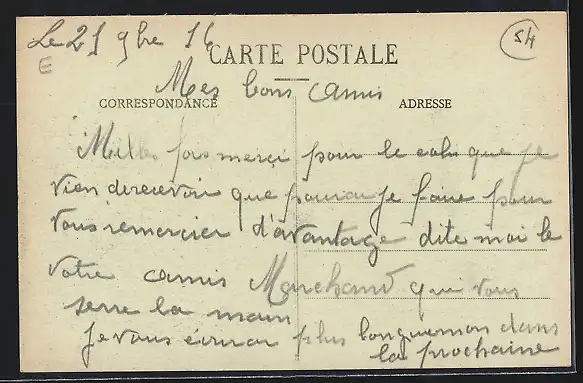 Le 21 9bre 16
54
E
CARTE POSTALE
Mes bons camis
CORRESPONDANCE
ADRESSE
Milles fois merçi pour le colis que je
vien derecevoir que pourai je faire pour
vous remercier d'avantage dite moi le
votre camis Marchand qui vous
serre la main
Je vous écrirai plus longuemon dans
la prochaine